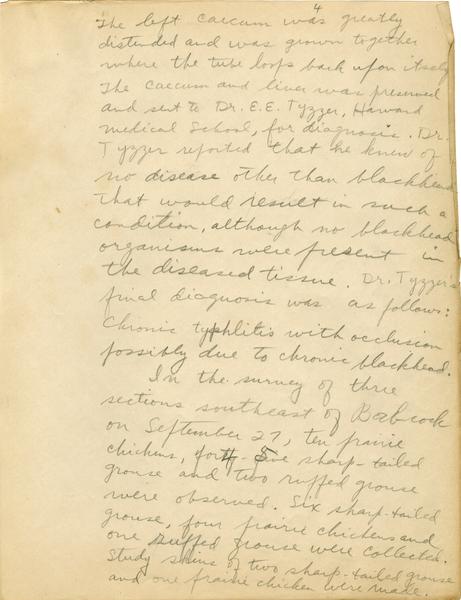 4
The left caecum was greatly
distended and was grown together
where the tube loops back upon itself
The caecum and liver was preserved
and sent to Dr. E.E. Tyzzer, Harvard
medical School, for diagnosis. Dr.
Tyzzer reported that he knew of
no disease other than blackhead
that would result in such a
condition, although no blackhead
organisms were present in
the diseased tissue. Dr. Tyzzer's
final diagnosis was as follows:
Chronic typhlitis with occlusion
possibly due to chronic blackhead.
In the survey of three
sections southeast of Babcock
on September 27, ten prairie
chickens, forty-five sharp-tailed
grouse and two ruffed grouse
were observed. Six sharp-tailed
grouse, four prairie chickens and
one ruffed grouse were collected.
Study skins of two sharp-tailed grouse
and one prairie chicken were made.